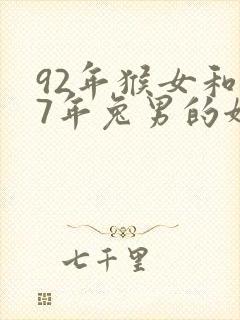 92年猴女和
7年兔男的
七千里